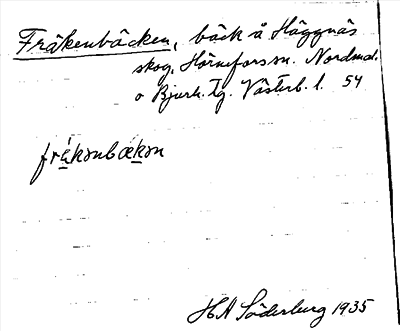 Fräkenbäcken, bäck å Häggnäs
skog, Hörneforssn. Nordmal.
o Bjurh. tg. Västerb. l. 54
frä́kənbækən
H A Söderberg 1935